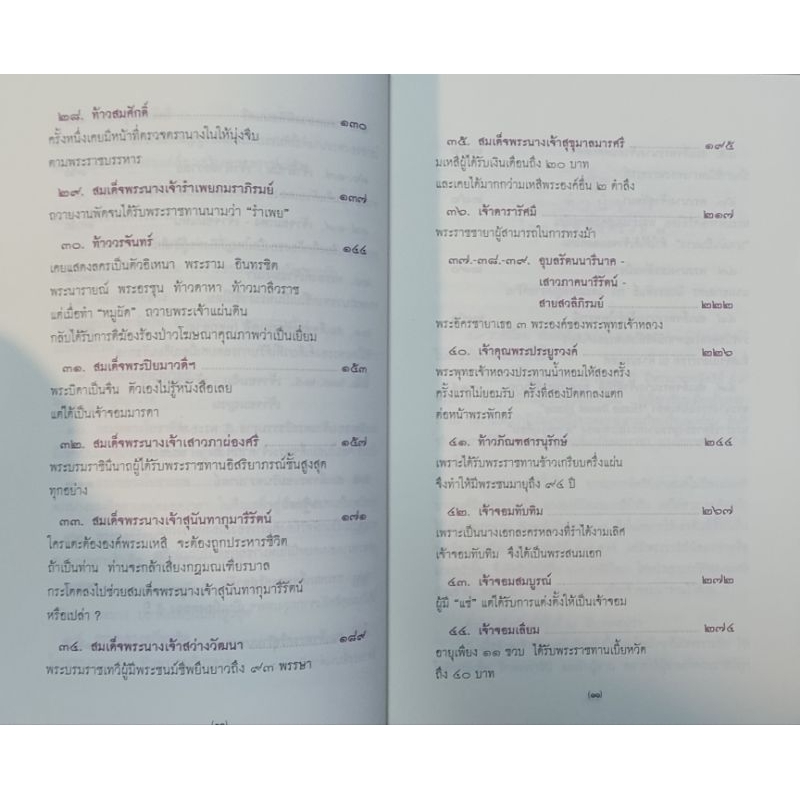 ๒๘. ท้าวสมศักดิ์ ๑๓๐
ครั้งหนึ่งเคยมีหน้าที่ตรวจตรานางในให้นุ่งจีบ
ตามพระราชบรรหาร
๒๙. สมเด็จพระนางเจ้ารำเพยภมราภิรมย์ ๑๓๗
ถวายงานพัดจนได้รับพระราชทานนามว่า “รำเพย”
๓๐. ท้าววรจันทร์ ๑๔๔
เคยแสดงละครเป็นตัวอิเหนา พระราม อินทรชิต
พระนารายณ์ พระอรชุน ท้าวดาหา ท้าวมาลีวราช
แต่เมื่อทำ “หมูผัด” ถวายพระเจ้าแผ่นดิน
กลับได้รับการตีฆ้องร้องป่าวโฆษณาคุณภาพว่าเป็นเยี่ยม
๓๑. สมเด็จพระปิยมาวดีฯ ๑๕๓
พระบิดาเป็นจีน ตัวเองไม่รู้หนังสือเลย
แต่ได้เป็นเจ้าจอมมารดา
๓๒. สมเด็จพระนางเจ้าเสาวภาผ่องศรี ๑๕๗
พระบรมราชินีนาถผู้ได้รับพระราชทานอิสริยาภรณ์ชั้นสูงสุด
ทุกอย่าง
๓๓. สมเด็จพระนางเจ้าสุนันทากุมารีรัตน์ ๑๗๑
ใครแตะต้ององค์พระมเหสี จะต้องถูกประหารชีวิต
ถ้าเป็นท่าน ท่านจะกล้าเสี่ยงกฎมณเฑียรบาล
กระโดดลงไปช่วยสมเด็จพระนางเจ้าสุนันทากุมารีรัตน์
หรือเปล่า ?
๓๔. สมเด็จพระนางเจ้าสว่างวัฒนา ๑๘๙
พระบรมราชเทวีผู้มีพระชนม์ชีพยืนยาวถึง ๙๓ พรรษา
๓๕. สมเด็จพระนางเจ้าสุขุมาลมารศรี ๑๙๕
มเหสีผู้ได้รับเงินเดือนถึง ๒๐ บาท
และเคยได้มากกว่ามเหสีพระองค์อื่น ๒ ตำลึง
๓๖. เจ้าดารารัศมี ๒๑๗
พระราชชายาผู้สามารถในการทรงม้า
๓๗.-๓๘.-๓๙. อุบลรัตนนารีนาค -
เสาวภาคนารีรัตน์ -
สายสวลีภิรมย์ ๒๒๒
พระอัครชายาเธอ ๓ พระองค์ของพระพุทธเจ้าหลวง
๔๐. เจ้าคุณพระประยูรวงศ์ ๒๒๖
พระพุทธเจ้าหลวงประทานน้ำหอมให้สองครั้ง
ครั้งแรกไม่ยอมรับ ครั้งที่สองปัดตกลงแตก
ต่อหน้าพระพักตร์
๔๑. ท้าวภัณฑสารนุรักษ์ ๒๔๔
เพราะได้รับพระราชทานข้าวเกรียบครึ่งแผ่น
จึงทำให้มีพระชนมายุถึง ๙๔ ปี
๔๒. เจ้าจอมทับทิม ๒๖๗
เพราะเป็นนางเอกละครหลวงที่รำได้งามเลิศ
เจ้าจอมทับทิม จึงได้เป็นพระสนมเอก
๔๓. เจ้าจอมสมบูรณ์ ๒๗๒
ผู้มี “แซ่” แต่ได้รับการแต่งตั้งให้เป็นเจ้าจอม
๔๔. เจ้าจอมเลียม ๒๗๔
อายุเพียง ๑๑ ขวบ ได้รับพระราชทานเบี้ยหวัด
ถึง ๔๐ บาท
(๑๑)